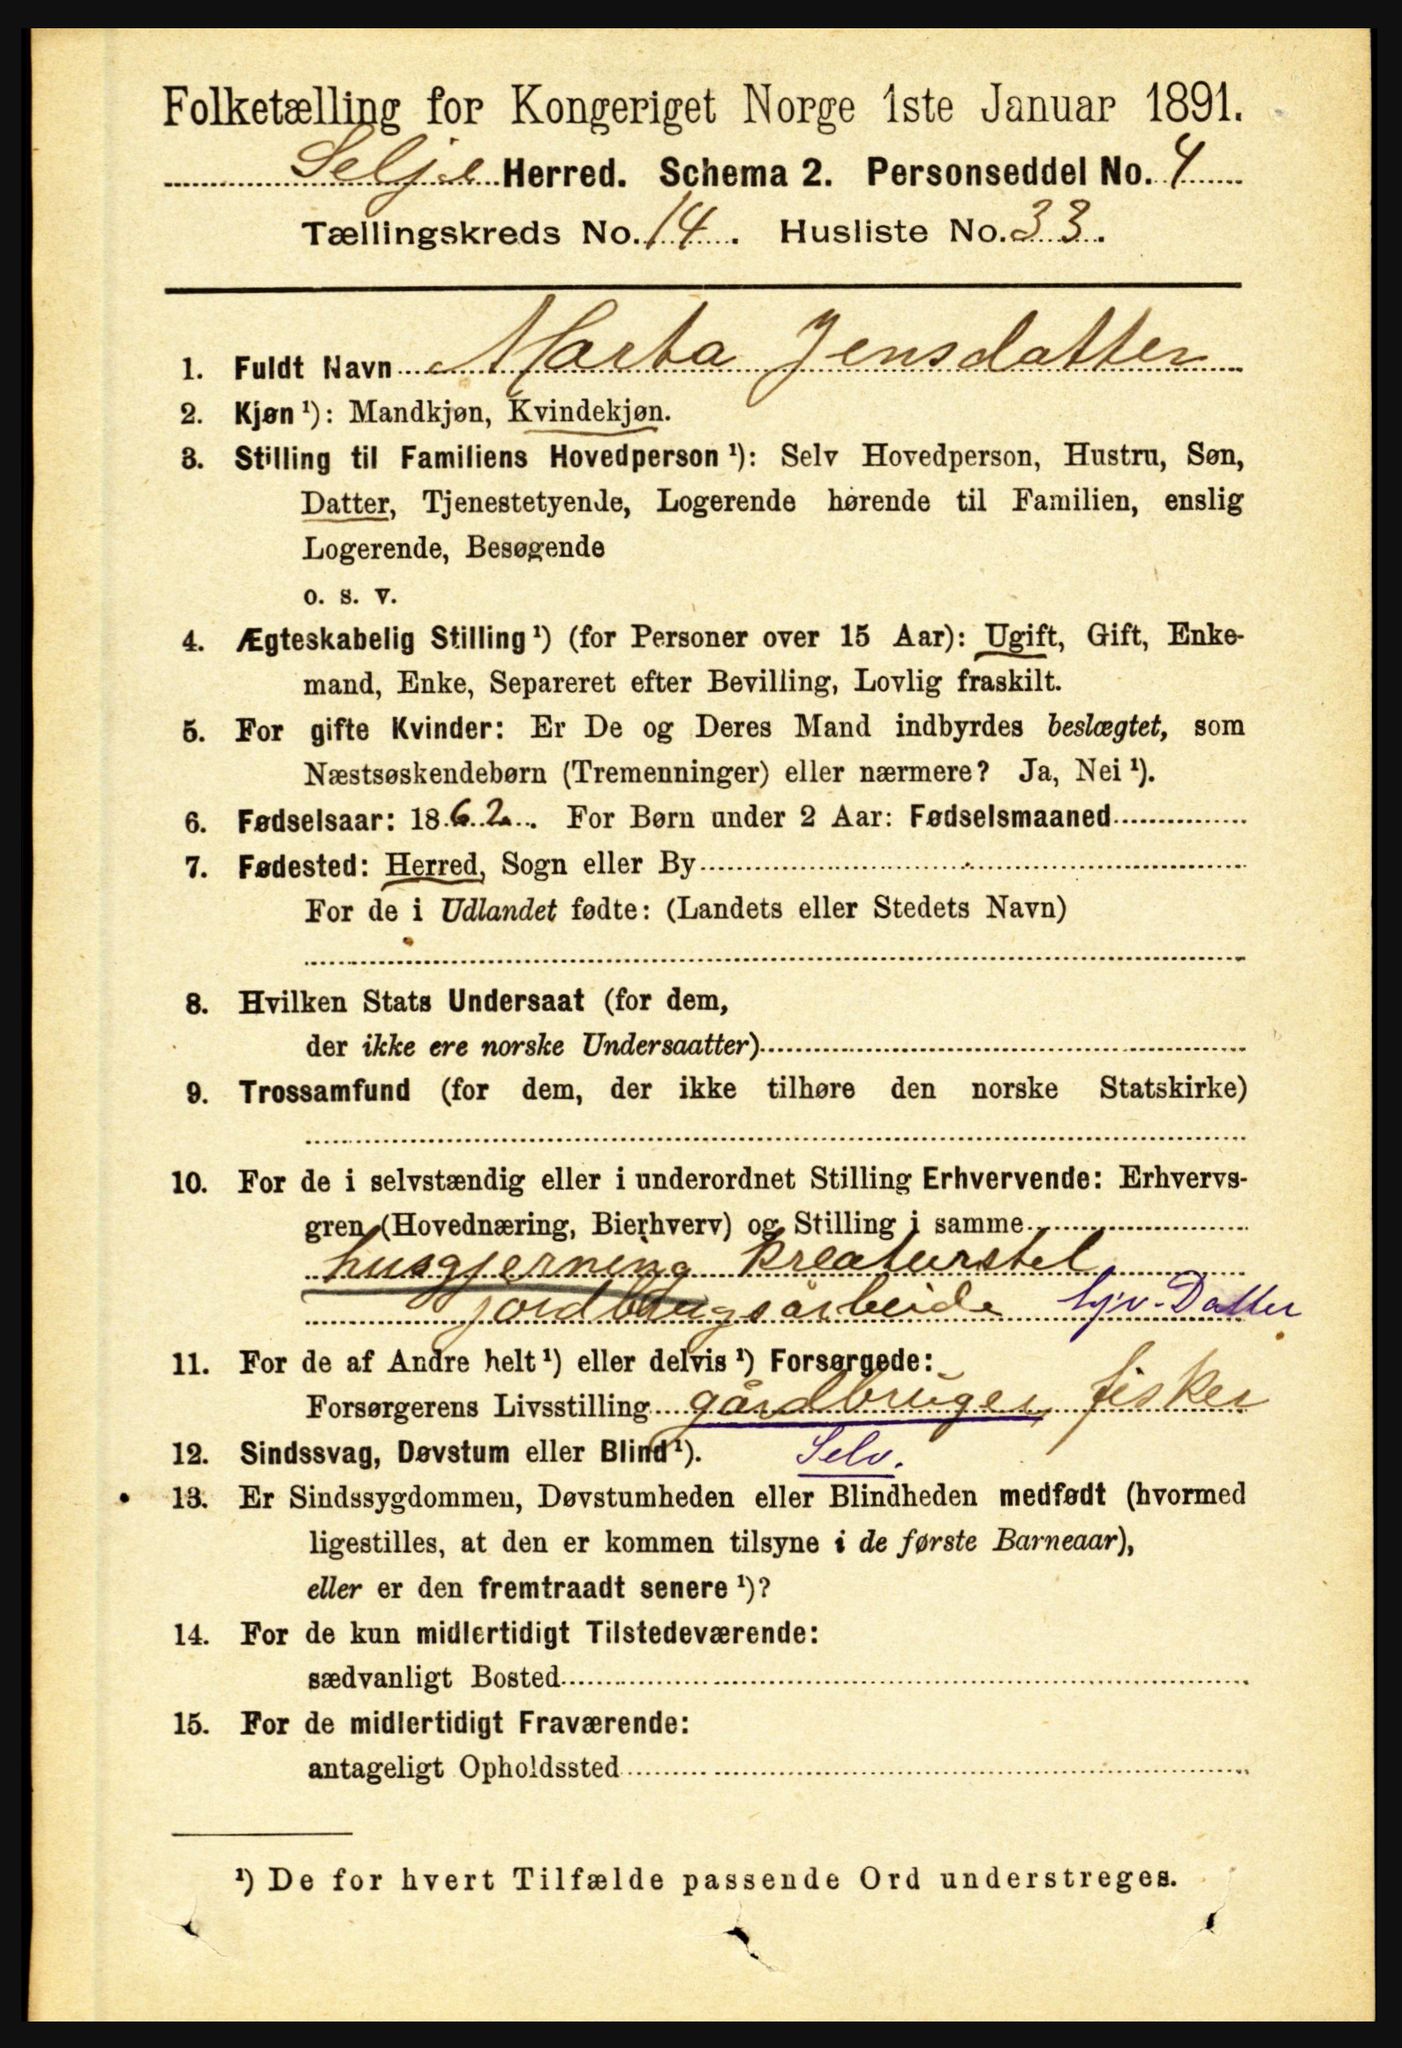 Folketælling for Kongeriget Norge 1ste Januar 1891.
Selje Herred. Schema 2. Personseddel No. 4
Tællingskreds No. 14. Husliste No. 33.
1. Fuldt Navn Marta Jensdatter
2. Kjøn ¹): Mandkjøn, Kvindekjøn.
3. Stilling til Familiens Hovedperson ¹): Selv Hovedperson, Hustru, Søn,
Datter, Tjenestetyende, Logerende hørende til Familien, enslig
Logerende, Besøgende
o. s. v.
4. Ægteskabelig Stilling ¹) (for Personer over 15 Aar): Ugift, Gift, Enke-
mand, Enke, Separeret efter Bevilling, Lovlig fraskilt.
5. For gifte Kvinder: Er De og Deres Mand indbyrdes beslægtet, som
Næstsøskendebørn (Tremenninger) eller nærmere? Ja, Nei ¹).
6. Fødselsaar: 1862. For Børn under 2 Aar: Fødselsmaaned
7. Fødested: Herred, Sogn eller By
For de i Udlandet fødte: (Landets eller Stedets Navn)
8. Hvilken Stats Undersaat (for dem,
der ikke ere norske Undersaatter)
9. Trossamfund (for dem, der ikke tilhøre den norske Statskirke)
10. For de i selvstændig eller i underordnet Stilling Erhvervende: Erhvervs-
gren (Hovednæring, Bierhverv) og Stilling i samme
husgjerning kreaturstel
jordbrugsarbeide hjv-Datter
11. For de af Andre helt ¹) eller delvis ¹) Forsørgede:
Forsørgerens Livsstilling gårdbruger, fisker
12. Sindssvag, Døvstum eller Blind ¹). Selv.
13. Er Sindssygdommen, Døvstumheden eller Blindheden medfødt (hvormed
ligestilles, at den er kommen tilsyne i de første Barneaar),
eller er den fremtraadt senere ¹)?
14. For de kun midlertidigt Tilstedeværende:
sædvanligt Bosted
15. For de midlertidigt Fraværende:
antageligt Opholdssted
¹) De for hvert Tilfælde passende Ord understreges.